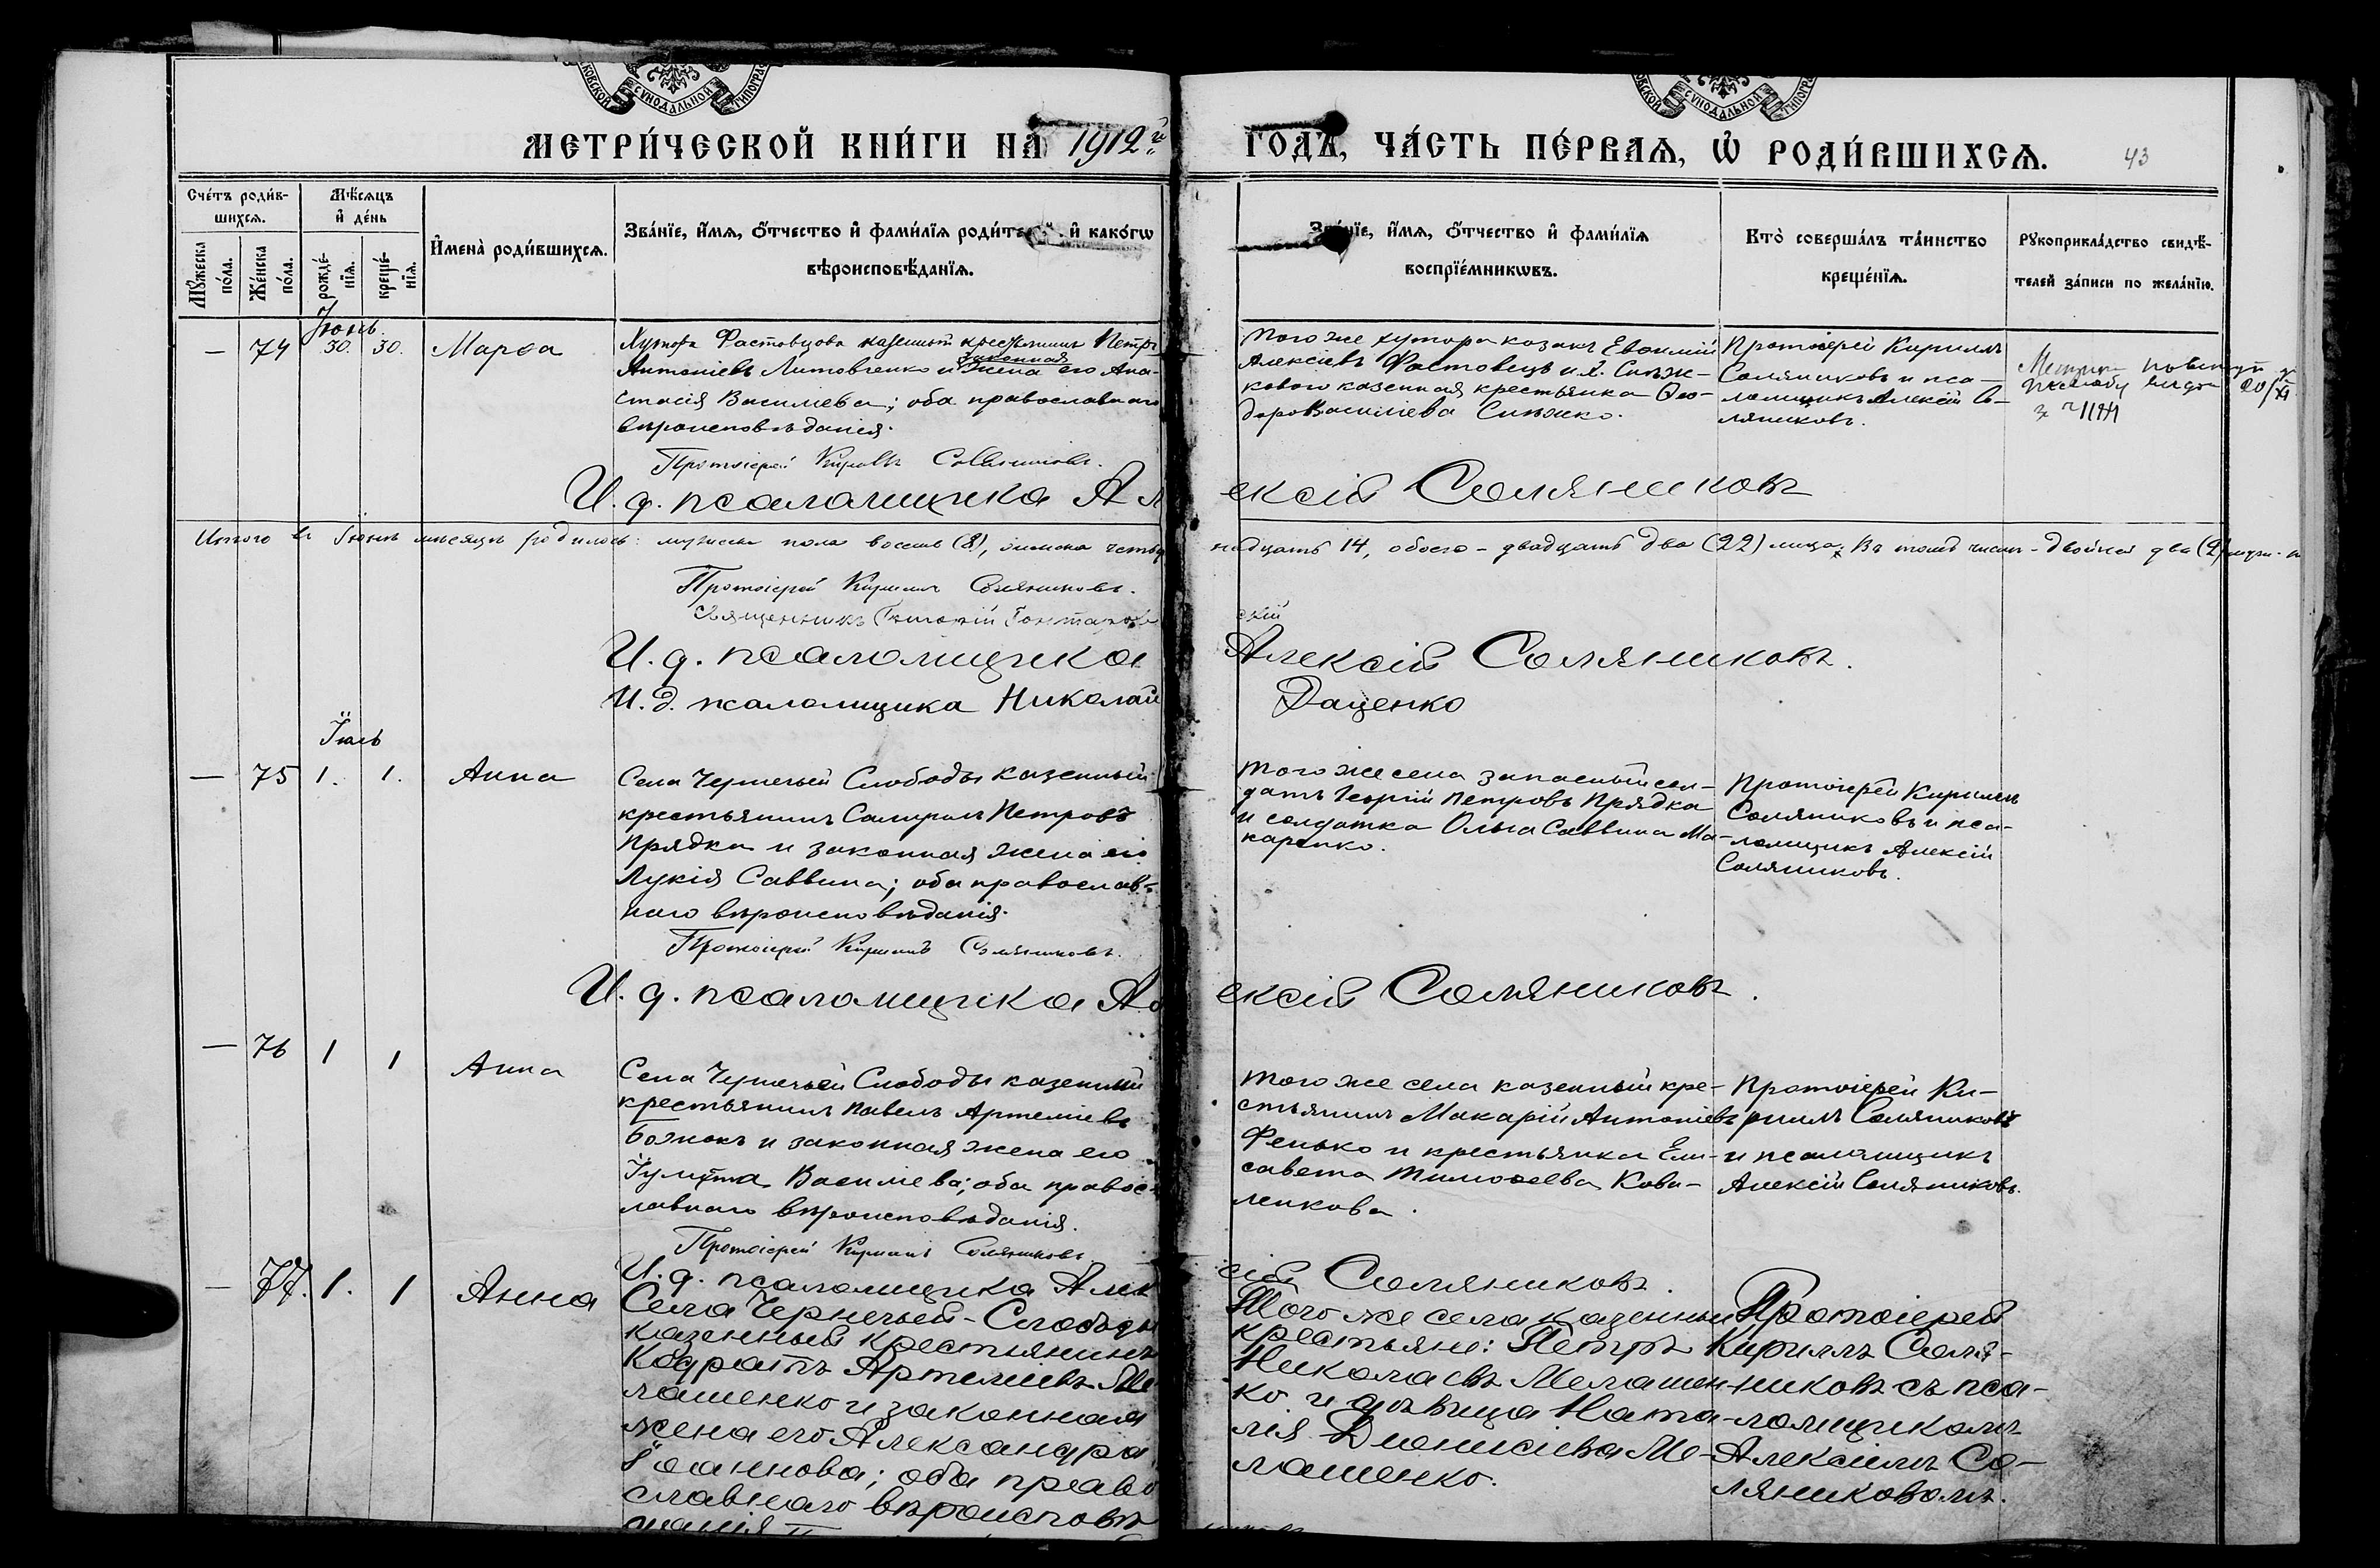 МЕТРИ́ЧЕСКОЙ КНИ́ГИ НА 1912й ГОДЪ, ЧА́СТЬ ПЕ́РВАЯ, Ѡ РОДИ́ВШИХСЯ.
43
Сче́тъ роди́в-
шихся.
Мѣ́сяцъ
и де́нь
Му́жеска
по́ла.
Же́нска
по́ла.
рожде́-
нїя.
креще́-
нїя.
Имена̀ роди́вшихся.
Зва́нїе, и́мя, ѻ́тчество и фами́лїя роди́те и како́гѡ
вѣроисповѣ́данїя.
Зва́нїе, и́мя, ѻ́тчество и фами́лїя
воспрїе́мникѡвъ.
Кто̀ соверша́лъ та́инство
креще́нїя.
Рукоприкла́дство свидѣ́-
телей за́писи по жела́нїю.
Іюнь.
— 74 30. 30. Марѳа
Хутора Фастовцова казенный крестьянинъ Петръ
законная
Антоніевъ Литовченко и жена его Ана-
стасія Василіева; оба православнаго
вѣроисповѣданія.
Того же хутора казакъ Евѳимій
Алексіевъ Фастовецъ и х.
коваго казенная крестьянка Ѳео-
дора Василіева
Протоіерей Кириллъ
Соляниковъ и пса-
ломщикъ Алексій Со-
ляниковъ.
Протоіерей Кириллъ Соляниковъ.
И. д. псаломщика Алексій Соляниковъ
Итого въ Іюнѣ мѣсяцѣ родилось: мужска пола восемь (8), женска четырнадцать 14, обоего - двадцать два (22) лица. Въ томъ числѣ - двойней два (2)
Протоіерей Кириллъ Соляниковъ.
Священникъ Григорій
скій
И. д. псаломщика Алексій Соляниковъ.
И. д. псаломщика Николай Даценко
Іюль
— 75 1. 1. Анна
Села Чернечьей Слободы казенный
крестьянинъ Самуилъ Петровъ
Прядка и законная жена его
Лукія Саввина; оба православ-
наго вѣроисповѣданія.
Того же села запасный сол-
датъ Георгій Петровъ Прядка
и солдатка Ольга Саввина Ма-
каренко.
Протоіерей Кириллъ
Соляниковъ и пса-
ломщикъ Алексій
Соляниковъ.
Протоіерей Кириллъ Соляниковъ.
И. д. псаломщика Алексій Соляниковъ.
— 76 1 1 Анна
Села Чернечьей Слободы казенный
крестьянинъ Павелъ Артеміевъ
Божокъ и законная жена его
Іулитта Василіева; оба правос-
лавнаго вѣроисповѣданія.
Того же села казенный кре-
стьянинъ Макарій Антоніевъ
Фенько и крестьянка Ели-
савета Тимоѳеева Кови-
ленкова.
Протоіерей Ки-
риллъ Соляниковъ
и псаломщикъ
Алексій Соляниковъ.
Протоіерей Кириллъ Соляниковъ
И. д. псаломщика Алексій Соляниковъ.
— 77. 1. 1 Анна
Села Чернечьей-Слободы
казенный крестьянинъ
Кодратъ Артеміевъ Ме
лашенко и законная
жена его Александра
Іоаннова; оба право
славнаго вѣроисповѣ
данія
Того же села казенные
крестьяне: Петръ
Николаевъ Мелашен-
ко и дѣвица Ната-
лія Діонисіева Ме-
лашенко.
Протоіерей
Кириллъ Соля-
никовъ съ пса-
ломщикомъ
Алексіемъ Со-
ляниковомъ.